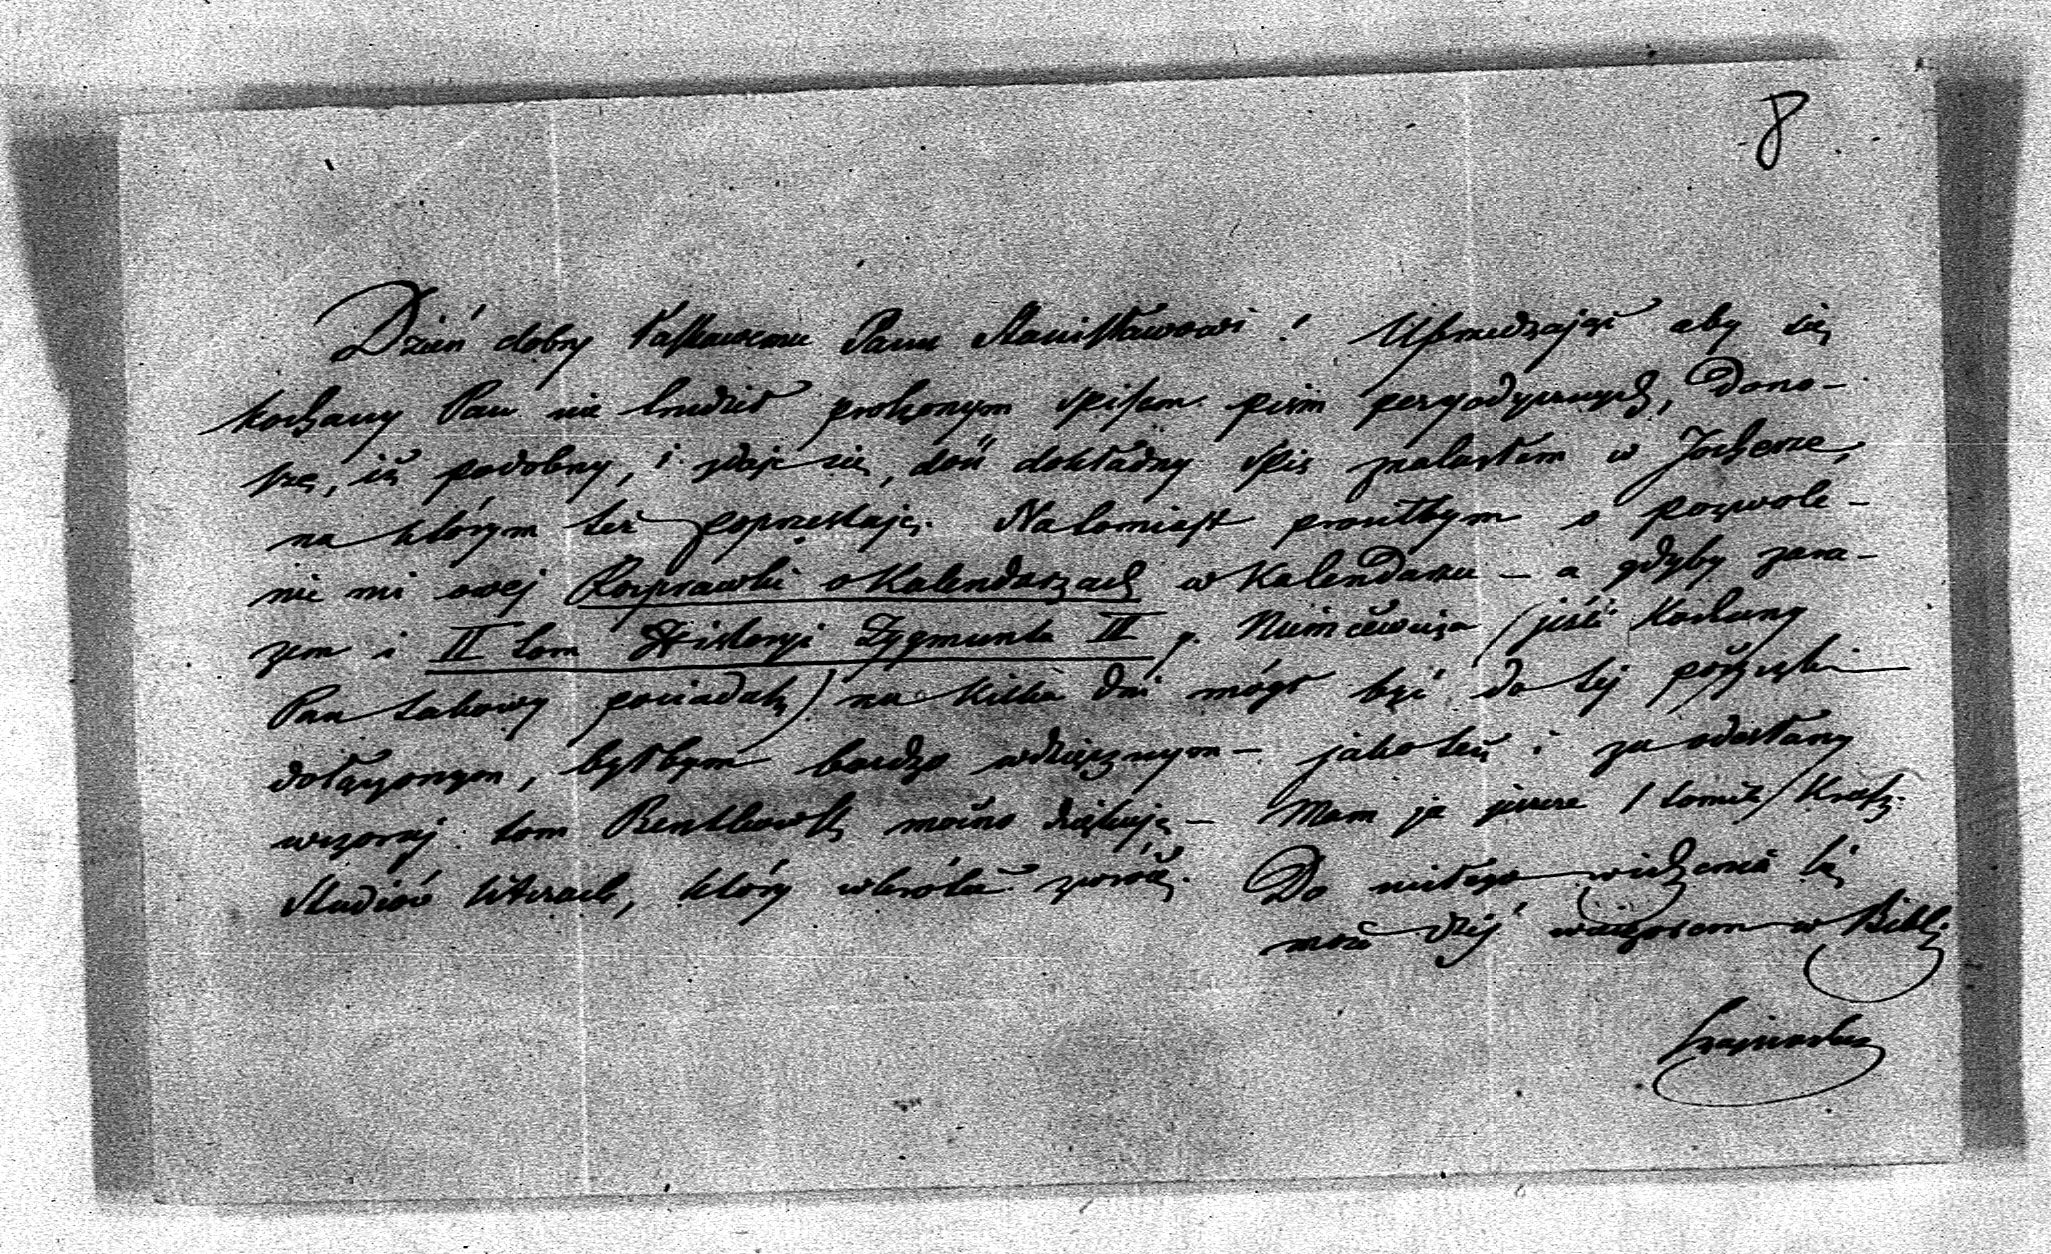 8
Dzień dobry Łaskawemu Panu Stanisławowi! Uprzedzając aby się
kochany Pan nie trudził proszonym spisem pism peryodycznych, dono-
szę, iż podobny, i zdaje się, dość dokładny spis znalazłem w Jocherze,
na którym też poprzestaję. Natomiast prosiłbym o pozwole-
nie mi owej Rozprawki o Kalendarzach w Kalendarzu – a gdyby zara-
zem i II tom Historyi Zygmunta III p. Niemcewicza (jeśli Kochany
Pan takowy posiada) na kilka dni mógł być do tej
dołączonym, byłbym bardzo wdzięcznym – jako też i za odesłany
wczoraj tom Bentkowsk. mocno dziękuję – Mam ja jeszcze 1 tomik Krasz.
Studiów liter., który wkrótce zwrócę. Do miłego widzenia się
może dziś wieczorem w Bibl.
Szajnocha